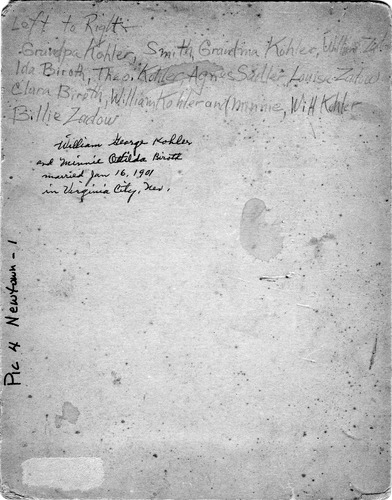 Left to Right:-
Grandpa Kohler, Smith, Grandma Kohler, William
Ida Biroth, Theo. Kohler, Agnes Sadler, Louisa Zadow
Clara Biroth, William Kohler and Minnie, Will Kohler
Billie Zadow
William George Kohler
and Minnie Otilda Biroth
married Jan 16, 1901
in Virginia City, Nev.
Pic 4 Newtown - 1